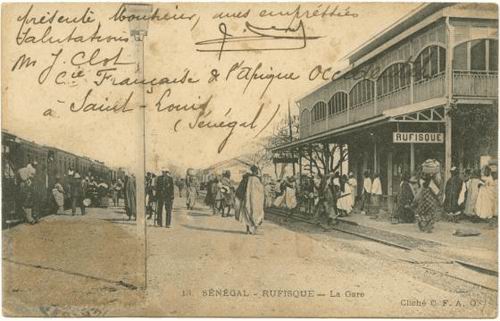 présenté, Monsieur, mes empréttiés
Salutations
Mr J. Clot,
Cie Française de l'Afrique Occidentale
à Saint-Louis
(Sénégal)
RUFISQUE
13. SÉNÉGAL - RUFISQUE — La Gare
Cliché C. F. A. O.